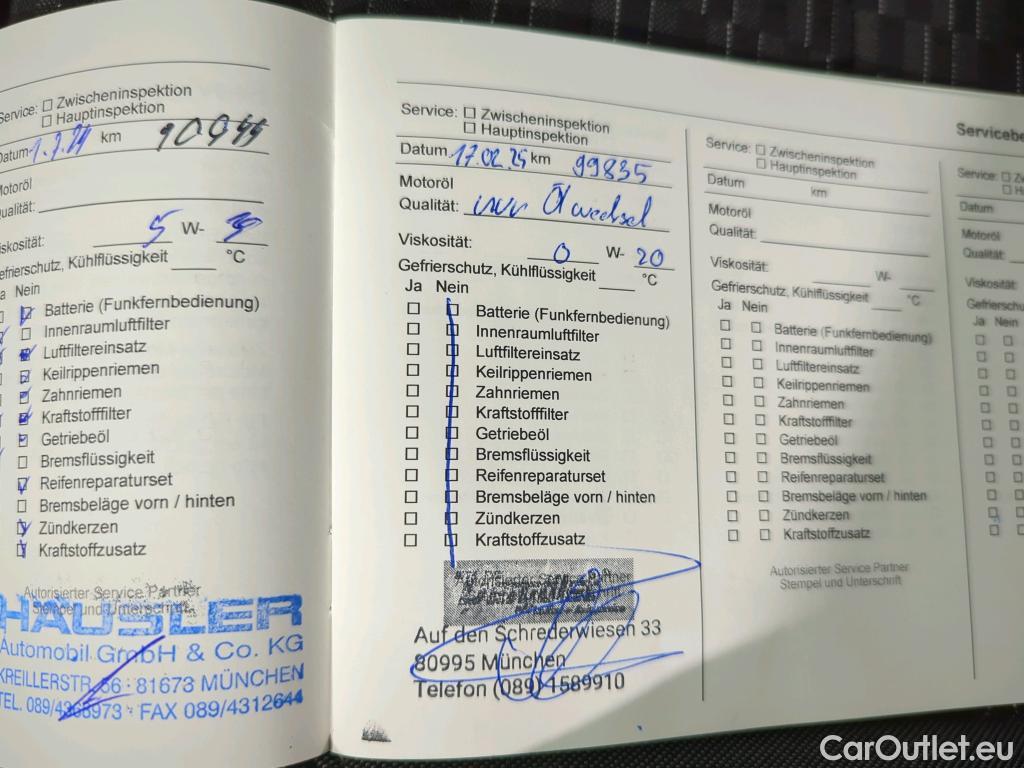 Service: Zwischeninspektion
Hauptinspektion
Datum km
Motoröl
Qualität:
Viskosität: 5 W-
Gefrierschutz, Kühlflüssigkeit °C
Ja Nein
Batterie (Funkfernbedienung)
Innenraumluftfilter
Luftfiltereinsatz
Keilrippenriemen
Zahnriemen
Kraftstofffilter
Getriebeöl
Bremsflüssigkeit
Reifenreparaturset
Bremsbeläge vorn / hinten
Zündkerzen
Kraftstoffzusatz
Autorisierter Service Partner
Stempel und Unterschrift
HÄUSLER
Automobil GmbH & Co. KG
KREILLERSTR. 66 · 81673 MÜNCHEN
TEL. 089/4368973 · FAX 089/4312644
Service: Zwischeninspektion
Hauptinspektion
Datum 17.02.25 km 99835
Motoröl
Qualität: nur Ölwechsel
Viskosität: 0 W- 20
Gefrierschutz, Kühlflüssigkeit °C
Ja Nein
Batterie (Funkfernbedienung)
Innenraumluftfilter
Luftfiltereinsatz
Keilrippenriemen
Zahnriemen
Kraftstofffilter
Getriebeöl
Bremsflüssigkeit
Reifenreparaturset
Bremsbeläge vorn / hinten
Zündkerzen
Kraftstoffzusatz
Auf den Schrederwiesen 33
80995 München
Telefon (089) 1589910
Service: Zwischeninspektion
Hauptinspektion
Datum km
Motoröl
Qualität:
Viskosität: W-
Gefrierschutz, Kühlflüssigkeit °C
Ja Nein
Batterie (Funkfernbedienung)
Innenraumluftfilter
Luftfiltereinsatz
Keilrippenriemen
Zahnriemen
Kraftstofffilter
Getriebeöl
Bremsflüssigkeit
Reifenreparaturset
Bremsbeläge vorn / hinten
Zündkerzen
Kraftstoffzusatz
Autorisierter Service Partner
Stempel und Unterschrift
Servicebe
Service:
Datum
Motoröl
Qualität:
Viskosität:
Gefrierschu
Ja Nein
CarOutlet.eu